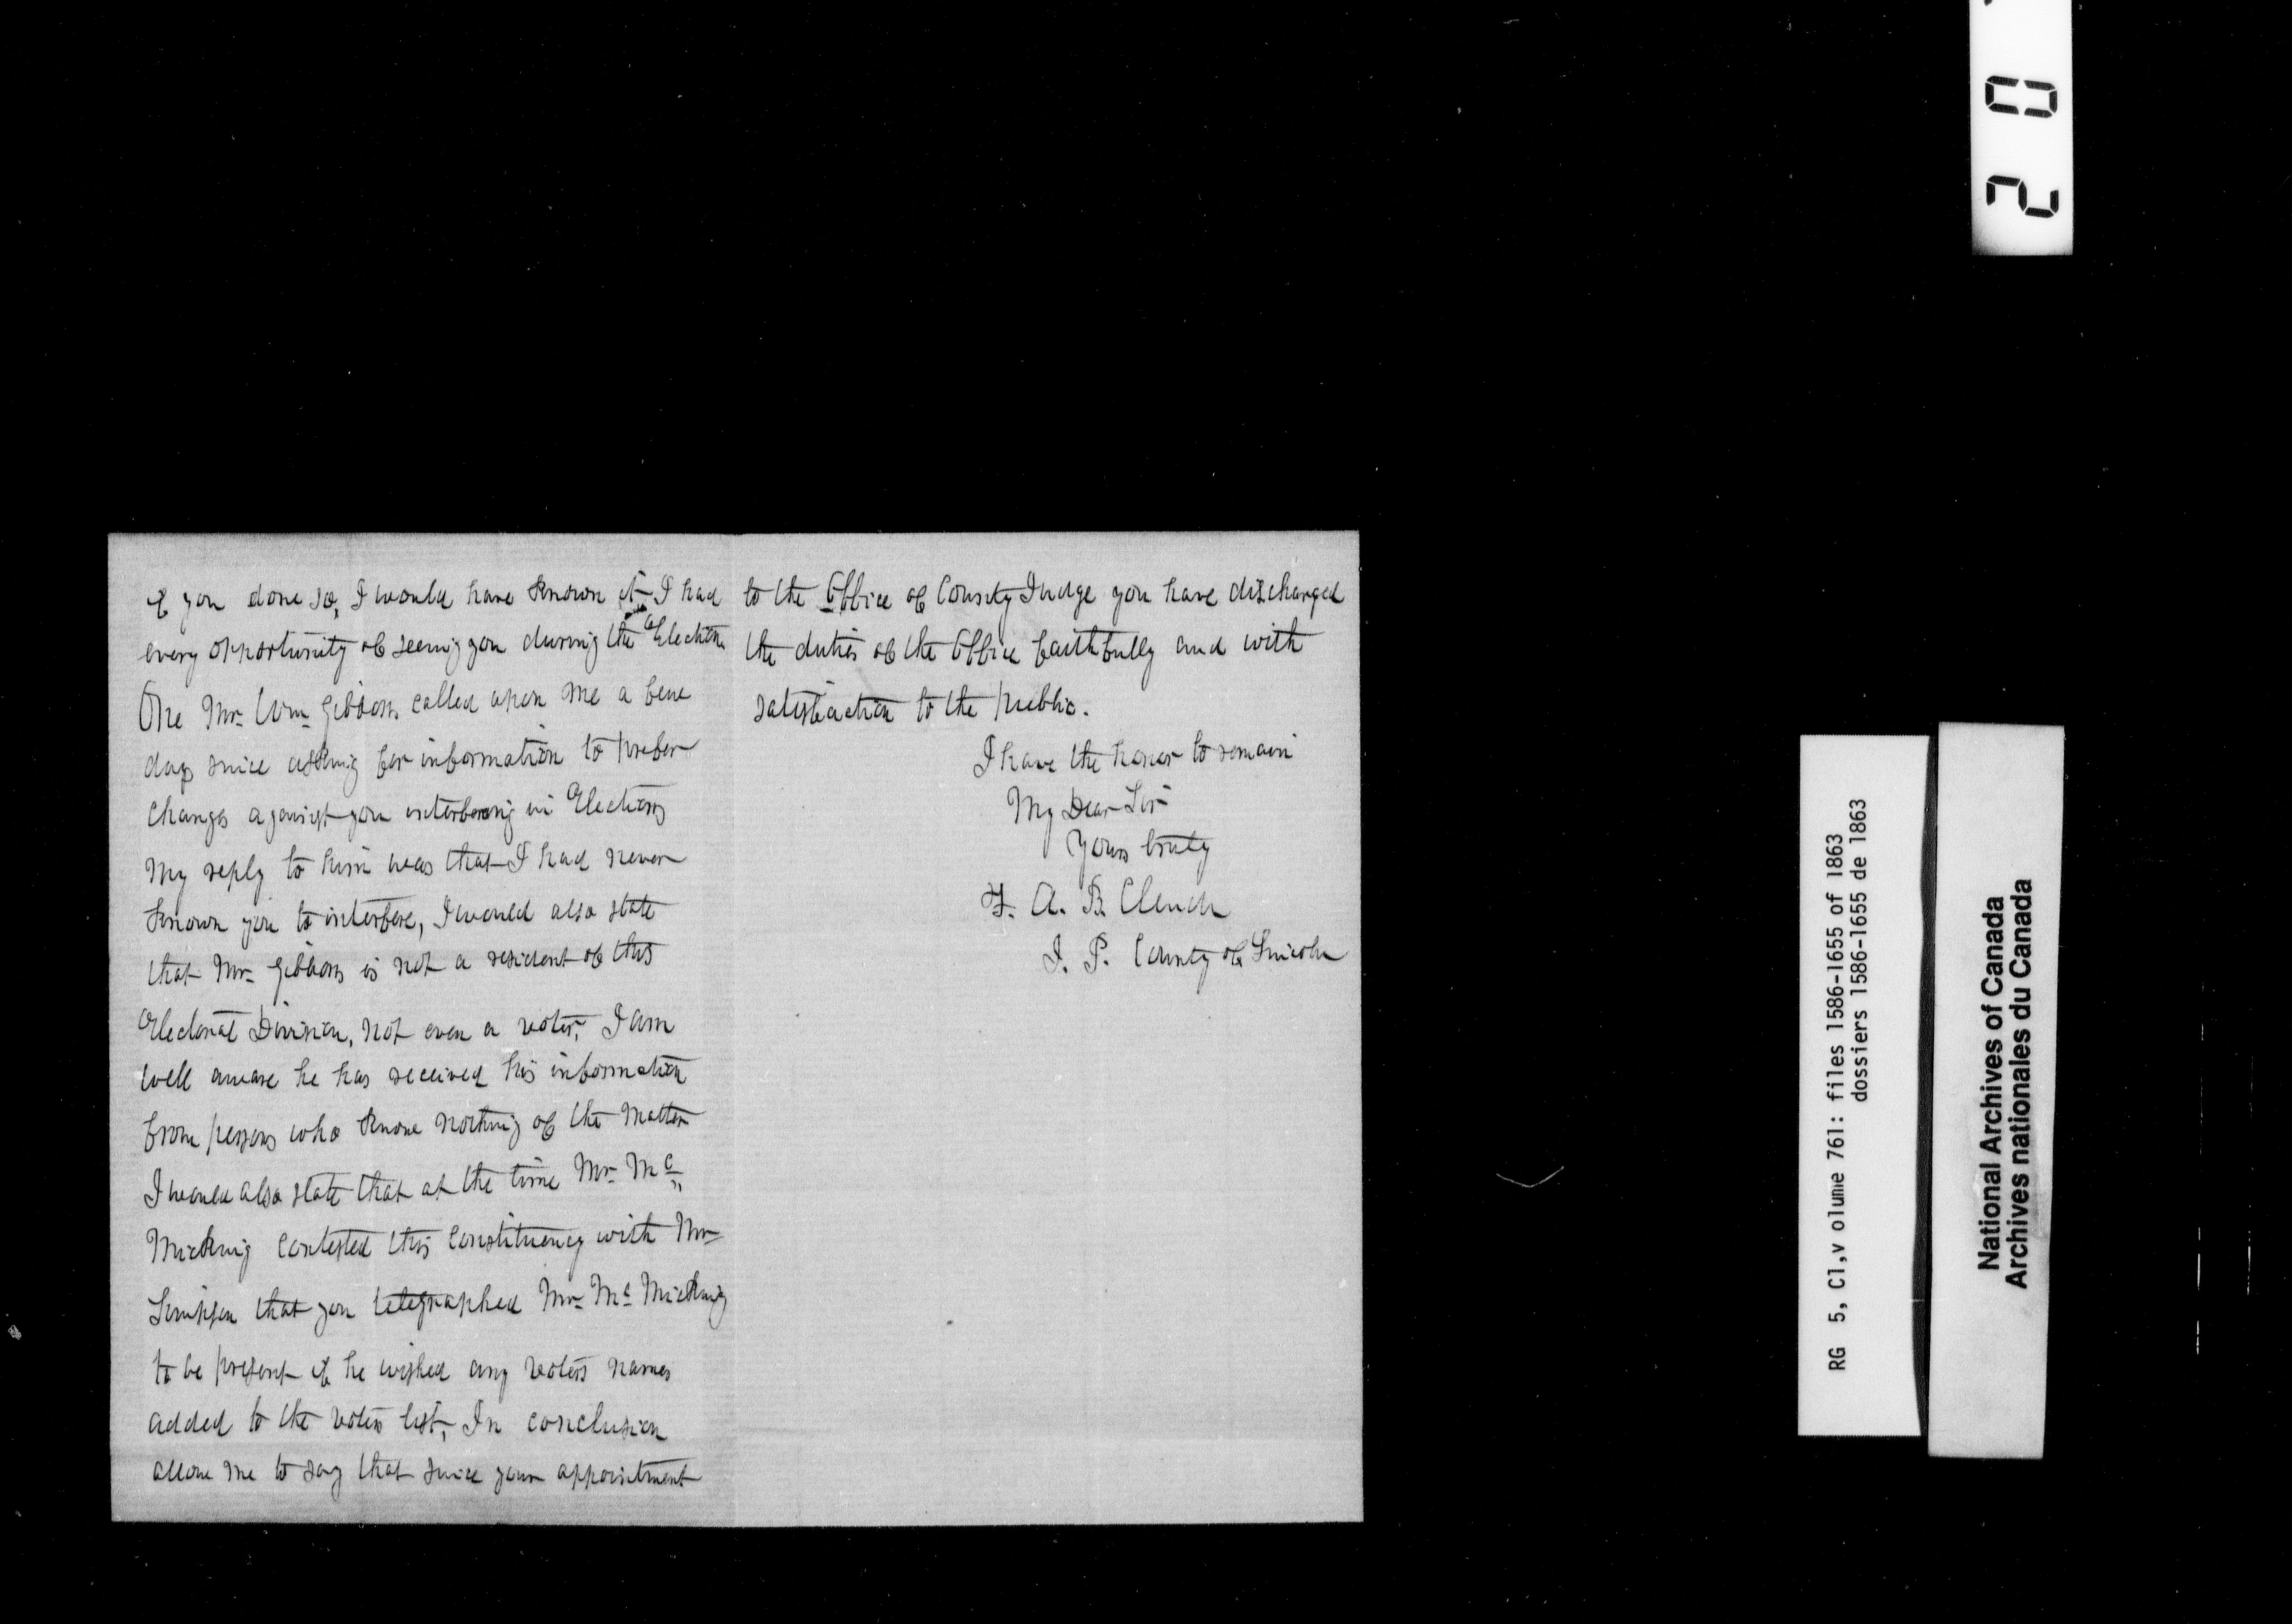 if you done so, I would have known it I had
every opportunity of seeing you during the Election
One Mr. Wm. Gibbons called upon me a few
days since asking for information to prefer
charges against you interfering in Elections
My reply to him was that I had never
known you to interfere, I would also state
that Mr. Gibbons is not a resident of this
Electoral Division, not even a voter, I am
well aware he has received his information
from persons who know nothing of the matter
I would also state that at the time Mr. Mc
Micking contested this constituency with Mr
Simpson that you telegraphed Mr. Mc Micking
to be present if he wished any voters names
added to the voters list, In conclusion
allow me to say that since your appointment
to the Office of County Judge you have discharged
the duties of the Office faithfully and with
satisfaction to the public.
I have the honor to remain
My Dear Sir
Yours truly
F. A. B. Clench
J. P. County of Lincoln
2 0
RG 5, C1,v olume 761: files 1586-1655 of 1863
dossiers 1586-1655 de 1863
National Archives of Canada
Archives nationales du Canada